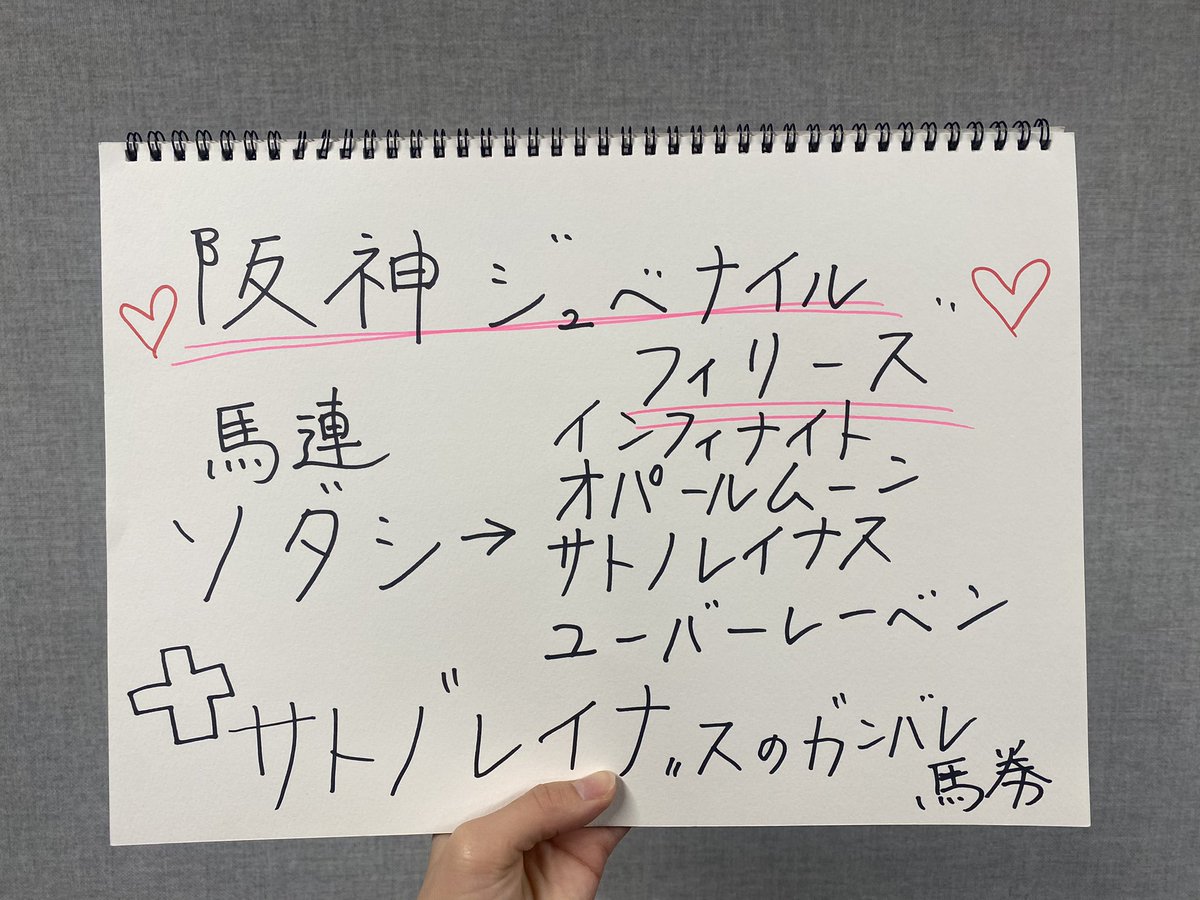 阪神ジュベナイル
フィリーズ
馬連
ソダシ→
インフィナイト
オパールムーン
サトノレイナス
ユーバーレーベン
+サトノレイナスのガンバレ
馬券